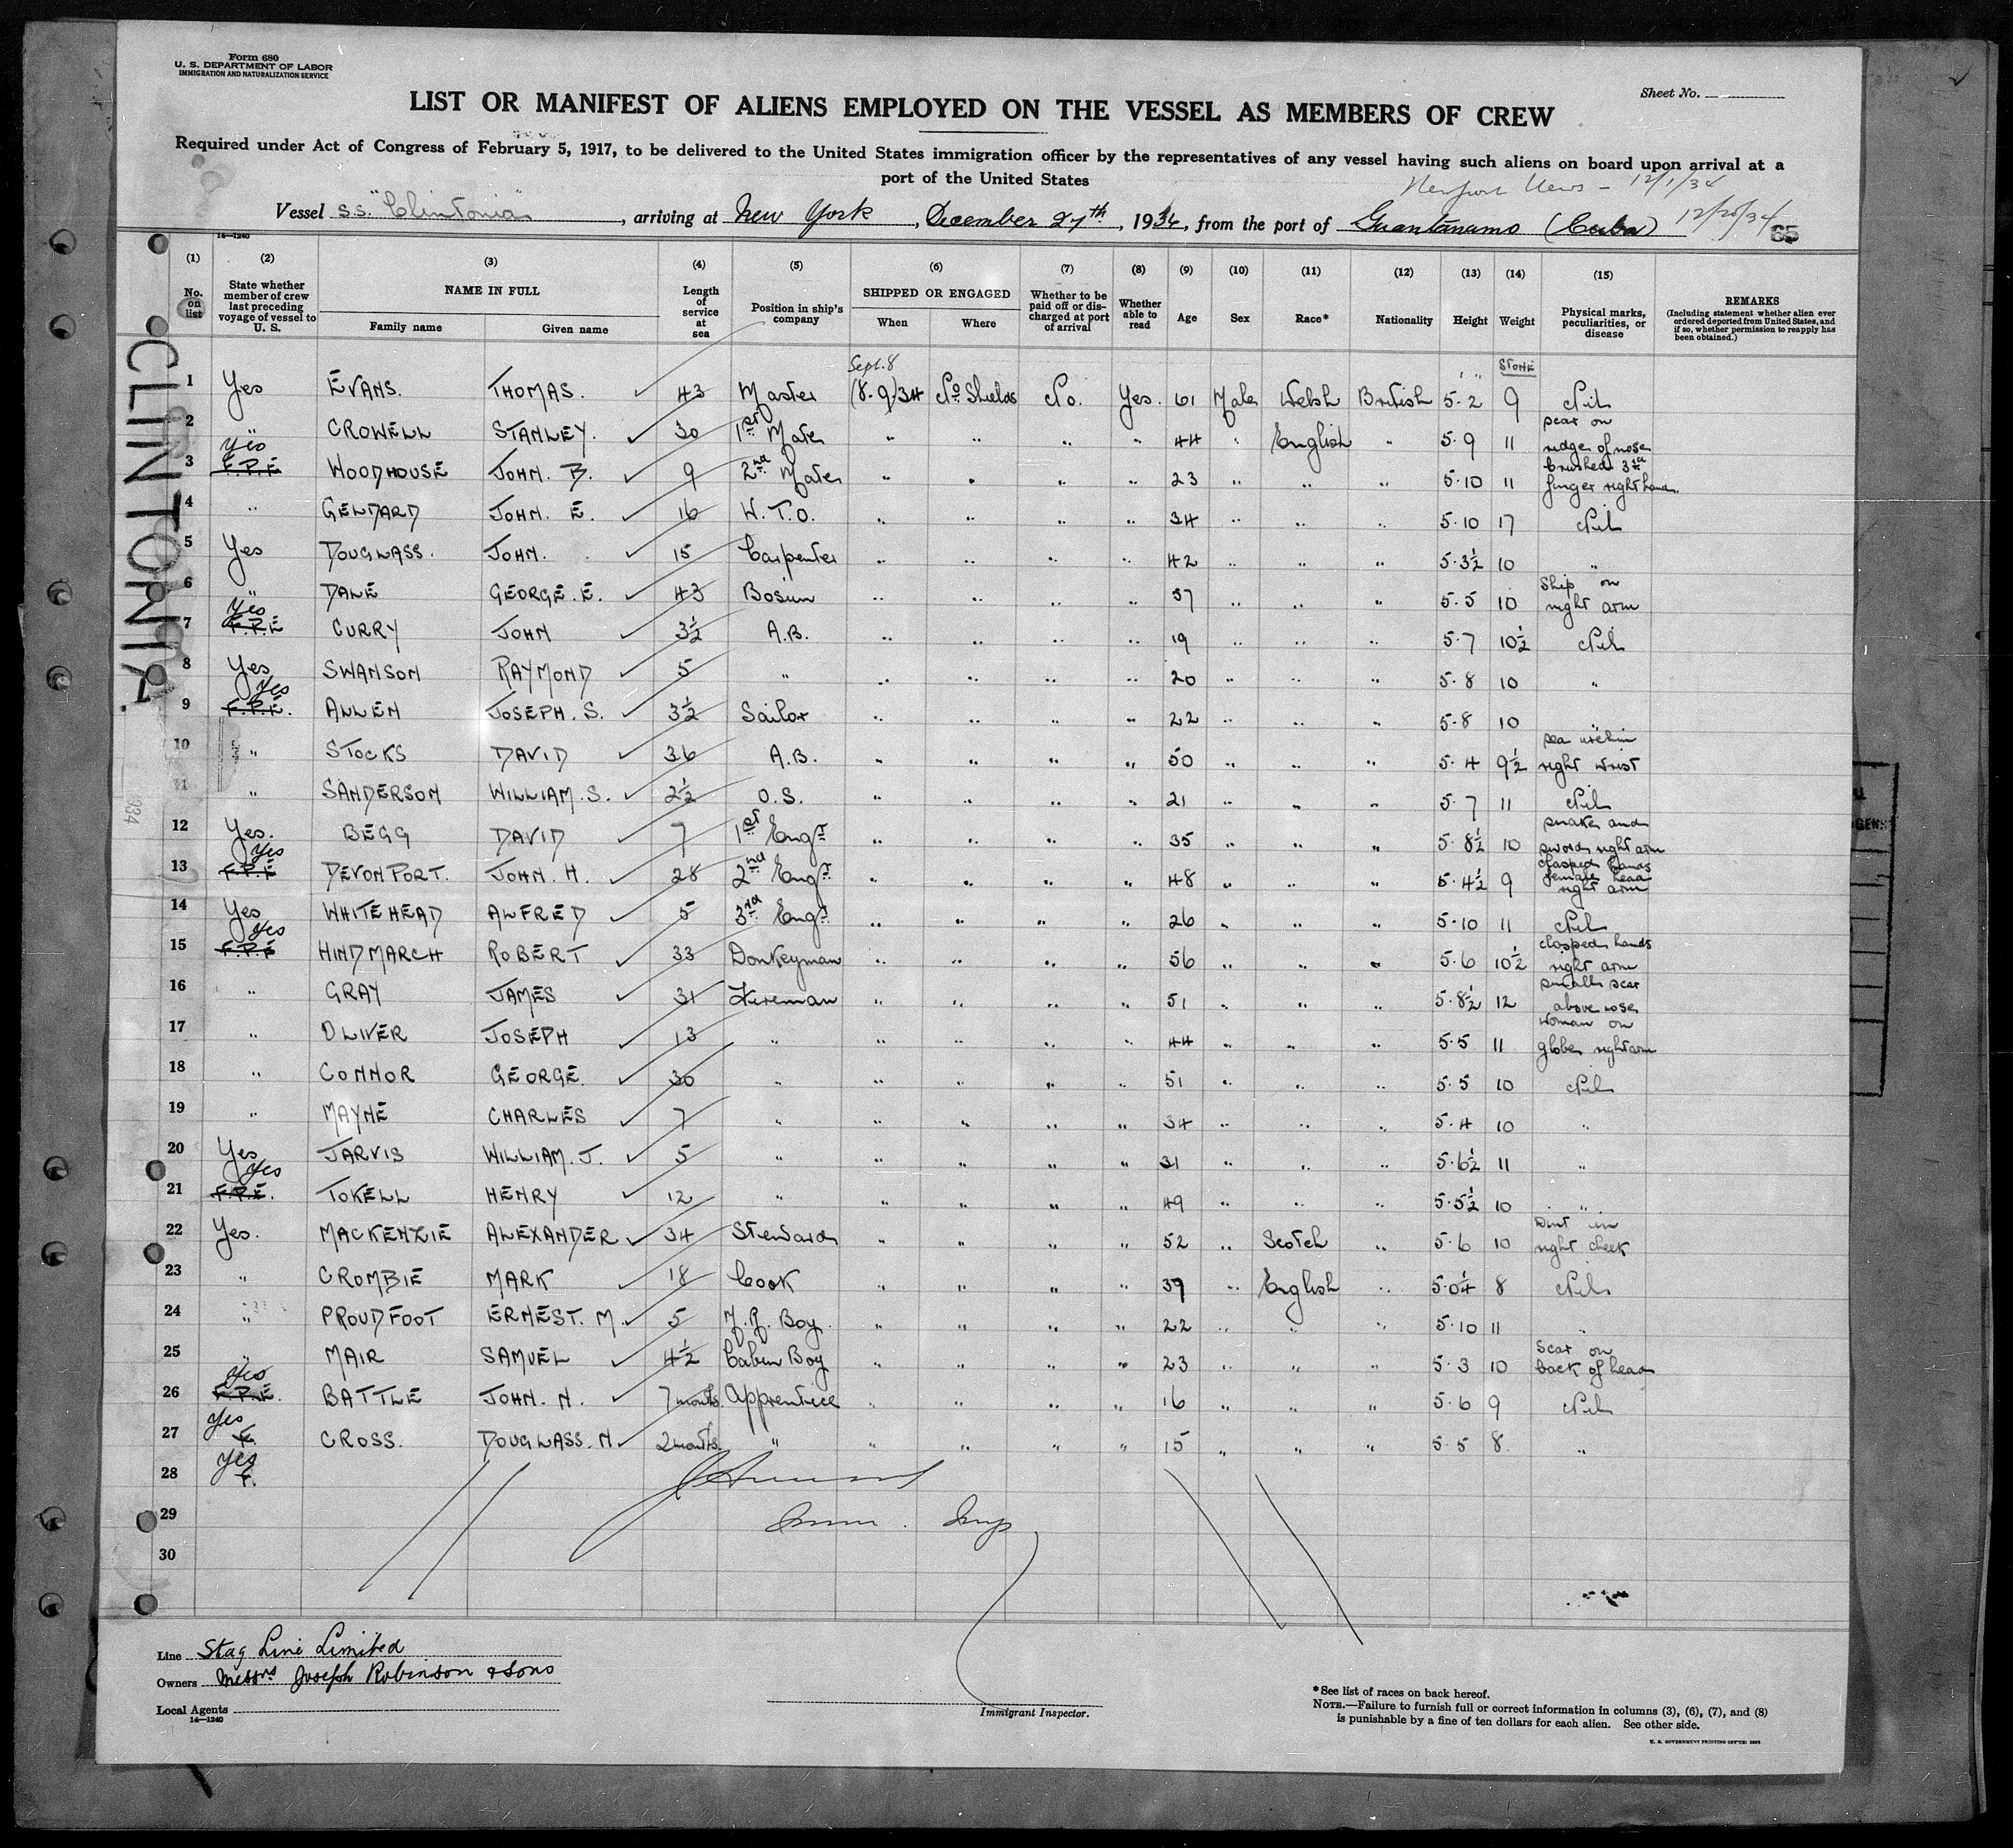 Form 680
U. S. DEPARTMENT OF LABOR
IMMIGRATION AND NATURALIZATION SERVICE
Sheet No.
LIST OR MANIFEST OF ALIENS EMPLOYED ON THE VESSEL AS MEMBERS OF CREW
Required under Act of Congress of February 5, 1917, to be delivered to the United States immigration officer by the representatives of any vessel having such aliens on board upon arrival at a
port of the United States
Newport News - 12/1/34
Vessel S.S. "Clintonia", arriving at New York, December 27th, 1934, from the port of Guantanamo (Cuba) 12/20/34
65
14-1240
(1) (2) (3) (4) (5) (6) (7) (8) (9) (10) (11) (12) (13) (14) (15)
No. on list
State whether member of crew last preceding voyage of vessel to U. S.
NAME IN FULL
Family name
Given name
Length of service at sea
Position in ship's company
SHIPPED OR ENGAGED
When
Where
Whether to be paid off or discharged at port of arrival
Whether able to read
Age
Sex
Race*
Nationality
Height
Weight
Physical marks, peculiarities, or disease
REMARKS
(Including statement whether alien ever ordered deported from United States, and if so, whether permission to reapply has been obtained.)
CLINTONIA.
Sept. 8
STONE
1 Yes EVANS. THOMAS. 43 Master (8.9)34 No. Shields No. Yes. 61 Male Welsh British 5-2 9 Nil
2 " CROWELL STANLEY. 30 1st Mate " " " " 44 " English " 5.9 11 scar on ridge of nose
3 Yes F.P.E WOODHOUSE JOHN. B. 9 2nd Mate " " " " 23 " " " 5.10 11 Crushed 3rd finger right hand
4 " GELDARD JOHN. E. 16 W.T.O. " " " " 34 " " " 5.10 17 Nil
5 Yes DOUGLASS. JOHN. 15 Carpenter " " " " 42 " " " 5.3½ 10 "
6 " DALE GEORGE. E. 43 Bosun " " " " 57 " " " 5.5 10 Ship on right arm
7 Yes F.P.E CURRY JOHN 3½ A.B. " " " " 19 " " " 5.7 10½ Nil
8 Yes SWANSON RAYMOND 5 " " " " " 20 " " " 5.8 10 "
9 Yes F.P.E. ALLEN JOSEPH. S. 3½ Sailor " " " " 22 " " " 5.8 10 "
10 " STOCKS DAVID 36 A.B. " " " " 50 " " " 5.4 9½ right wrist
11 " SANDERSON WILLIAM. S. 2½ O.S. " " " " 21 " " " 5.7 11 Nil
12 Yes. BEGG DAVID 7 1st Engr " " " " 35 " " " 5.8½ 10 snake and sword right arm
13 Yes F.P.E DEVONPORT. JOHN. H. 28 2nd Engr " " " " 48 " " " 5.4½ 9 clasped hands female head right arm
14 Yes WHITEHEAD ALFRED 5 3rd Engr " " " " 26 " " " 5.10 11 Nil
15 Yes F.P.E HINDMARCH ROBERT 33 Donkeyman " " " " 56 " " " 5.6 10½ clasped hands right arm
16 " GRAY JAMES 31 Fireman " " " " 51 " " " 5.8½ 12 small scar above nose
17 " OLIVER JOSEPH 13 " " " " " 44 " " " 5.5 11 Woman on globe right arm
18 " CONNOR GEORGE 30 " " " " " 51 " " " 5.5 10 Nil
19 " MAYNE CHARLES 7 " " " " " 34 " " " 5.4 10 "
20 Yes JARVIS WILLIAM. J. 5 " " " " " 31 " " " 5.6½ 11 "
21 Yes F.P.E. TOKELL HENRY 12 " " " " " 49 " " " 5.5½ 10 "
22 Yes. MACKENZIE ALEXANDER 34 Steward " " " " 52 " Scotch " 5.6 10 Dint in right cheek
23 " CROMBIE MARK 18 Cook " " " " 39 " English " 5.0¼ 8 Nil
24 " PROUDFOOT ERNEST. M. 5 M.R. Boy. " " " " 22 " " " 5.10 11 "
25 " MAIR SAMUEL 4½ Cabin Boy " " " " 23 " " " 5.3 10 Scar on back of head
26 Yes F.P.E. BATTLE JOHN. N. 7 months. Apprentice " " " " 16 " " " 5.6 9 Nil
27 Yes F. CROSS. DOUGLASS. N. 2 months. " " " " " 15 " " " 5.5 8. "
28 Yes F.
29 Imm. Insp
30
Line Stag Line Limited
Owners Messrs Joseph Robinson & Sons
Local Agents
14-1240
Immigrant Inspector.
*See list of races on back hereof.
NOTE.—Failure to furnish full or correct information in columns (3), (6), (7), and (8)
is punishable by a fine of ten dollars for each alien. See other side.
U. S. GOVERNMENT PRINTING OFFICE: